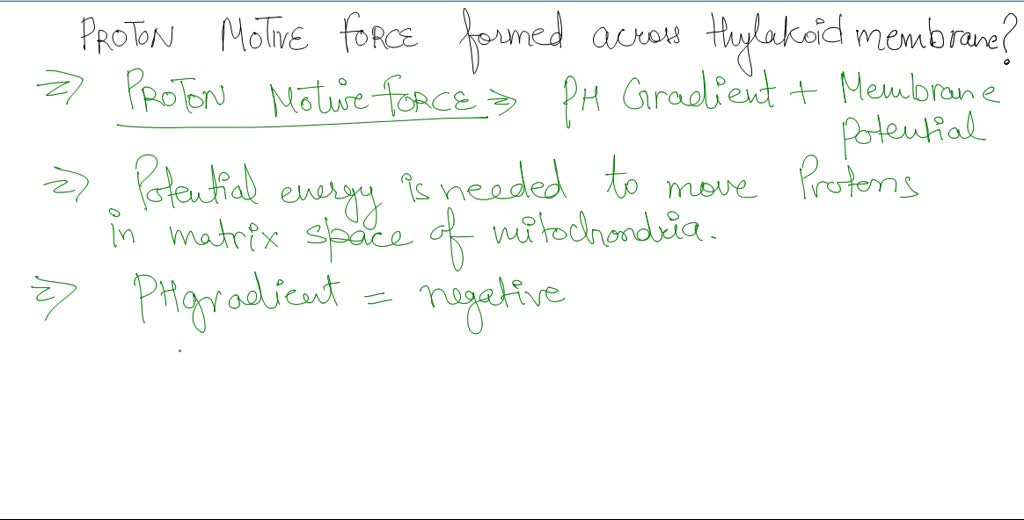 PROTON MOTIVE FORCE formed across thylakoid membrane?
⇒ PROTON MOTIVE FORCE ⇒ PH Gradient + Membrane
potential
⇒ Potential energy is needed to move Protons
in matrix space of mitochondria.
⇒ PH gradient = negative